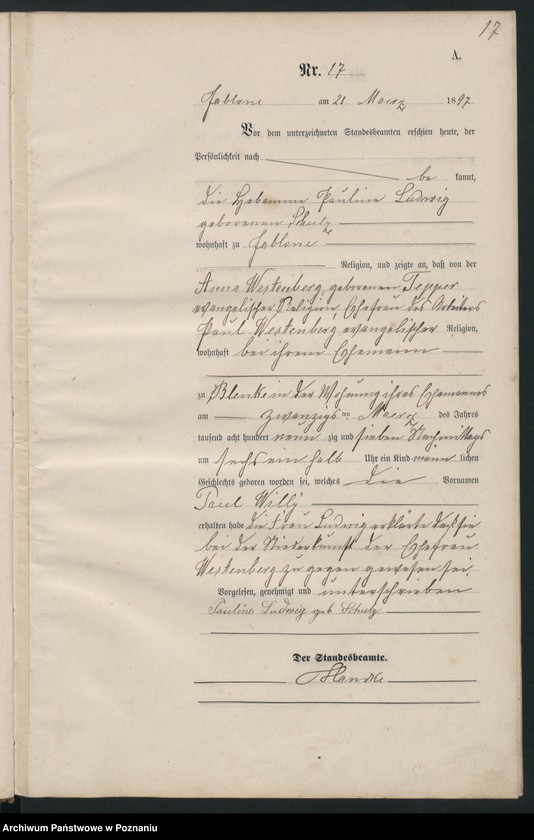 17
A.
Nr. 17
Jablone am 21 Maerz 1897
Vor dem unterzeichneten Standesbeamten erschien heute, der
Persönlichkeit nach
be kannt,
die Hebamme Pauline Ludwig
geborenen Schulz
wohnhaft zu Jablone
Religion, und zeigte an, daß von der
Anna Westenberg, geborenen Tepper
evangelischer Religion, Ehefrau des Arbeiters
Paul Westenberg, evangelischer Religion,
wohnhaft bei ihrem Ehemann
zu Blenke in der Wohnung ihres Ehemannes
am zwanzigsten Maerz des Jahres
tausend acht hundert neun zig und sieben Nachmittags
um sechs ein halb Uhr ein Kind männ lichen
Geschlechts geboren worden sei, welches die Vornamen
Paul Willy
erhalten habe die Frau Ludwig erklärte daß sie
bei der Niederkunft der Ehefrau
Westenberg zu gegen gewesen sei.
Vorgelesen, genehmigt und unterschrieben
Pauline Ludwig geb Schulz
Der Standesbeamte.
Archiwum Państwowe w Poznaniu